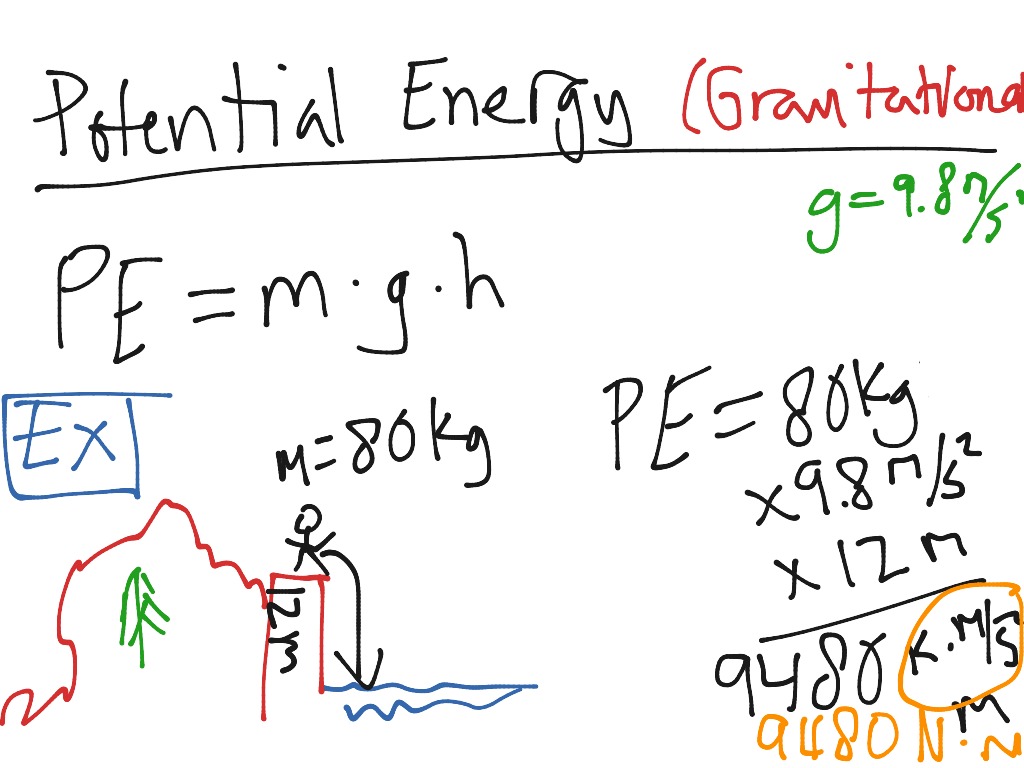 Potential Energy (Gravitational
g = 9.8 m/s²
PE = m · g · h
Ex
m = 80 kg
PE = 80 kg
x 9.8 m/s²
x 12 m
12 m
9480 K · M/S
m
9480 N ·